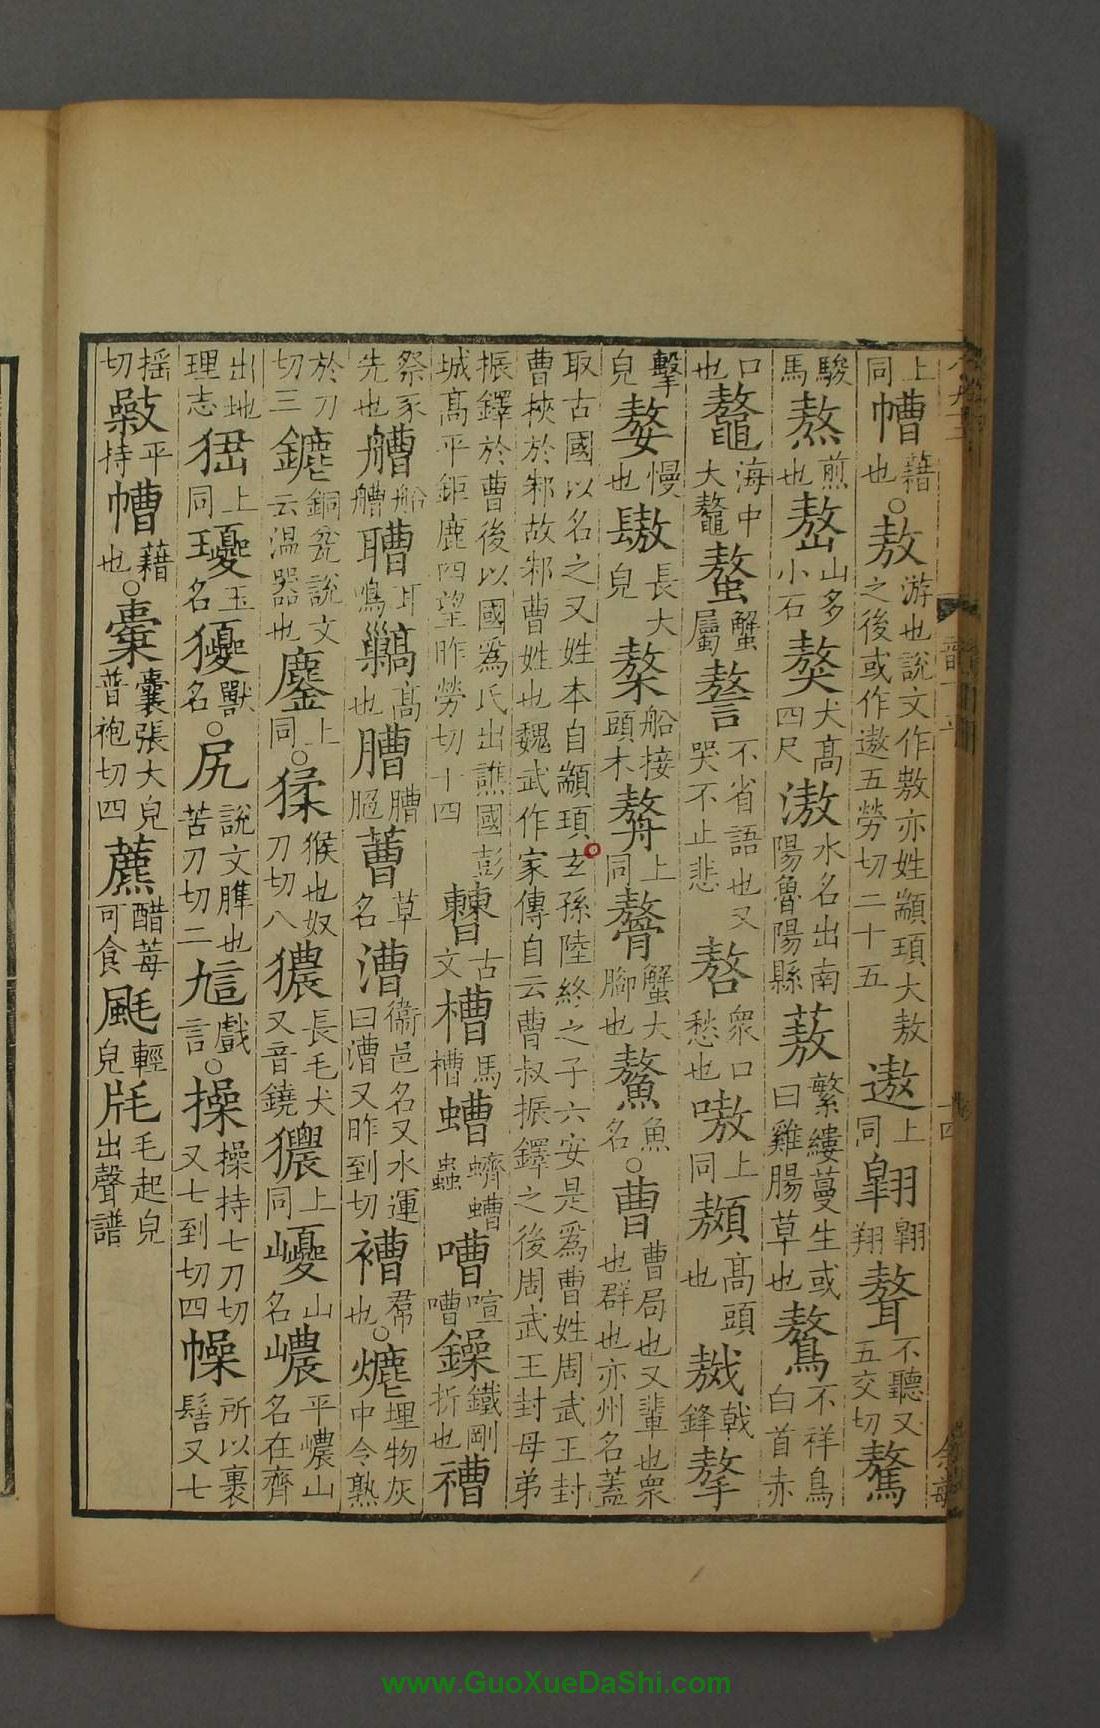 上同㡟藉也○敖游也說文作敖亦姓顓頊大敖之後或作遨五勞切二十五遨上同翶翶翔聱不聽又五交切驁
駿馬熬煎也嶅山多小石獒犬高四尺滶水名出南陽魯陽縣蔜繁縷蔓生或曰雞腸草也鷔不祥鳥白首赤
口也鼇海中大鼇螯蟹屬謷不省語也又哭不止悲㟼衆口愁也嗷上同顤高頭也戟鋒摮
擊皃嫯慢也長大皃船接頭木上同蟹大腳也魚名○曹曹局也又輩也衆也群也亦州名蓋
取古國以名之又姓本自顓頊玄孫陸終之子六安是爲曹姓周武王封曹挾於邾故邾曹姓也魏武作家傳自云曹叔振鐸之後周武王封母弟
振鐸於曹後以國爲氏出譙國彭城高平鉅鹿四望昨勞切十四古文槽馬槽螬蠐螬蟲嘈喧嘈鐵剛折也
祭豕先也艚船艚耳鳴高也膅䐬蓸草名漕衞邑名又水運曰漕又昨到切褿帬也○爊埋物灰中令熟
於刀切三鏕銅瓫說文云温器也鏖上同○猱猴也奴刀切八獶長毛犬又音鐃獿上同巎山名峱平峱山名在齊
出地理志上同玉名獸名○尻說文脽也苦刀切二𠱰戲言○操操持七刀切又七到切四幧所以裹髻又七
搖切持平㡟藉也○櫜囊張大皃普袍切四藨醋莓可食輕皃毛起皃出聲譜
www.GuoXueDaShi.com